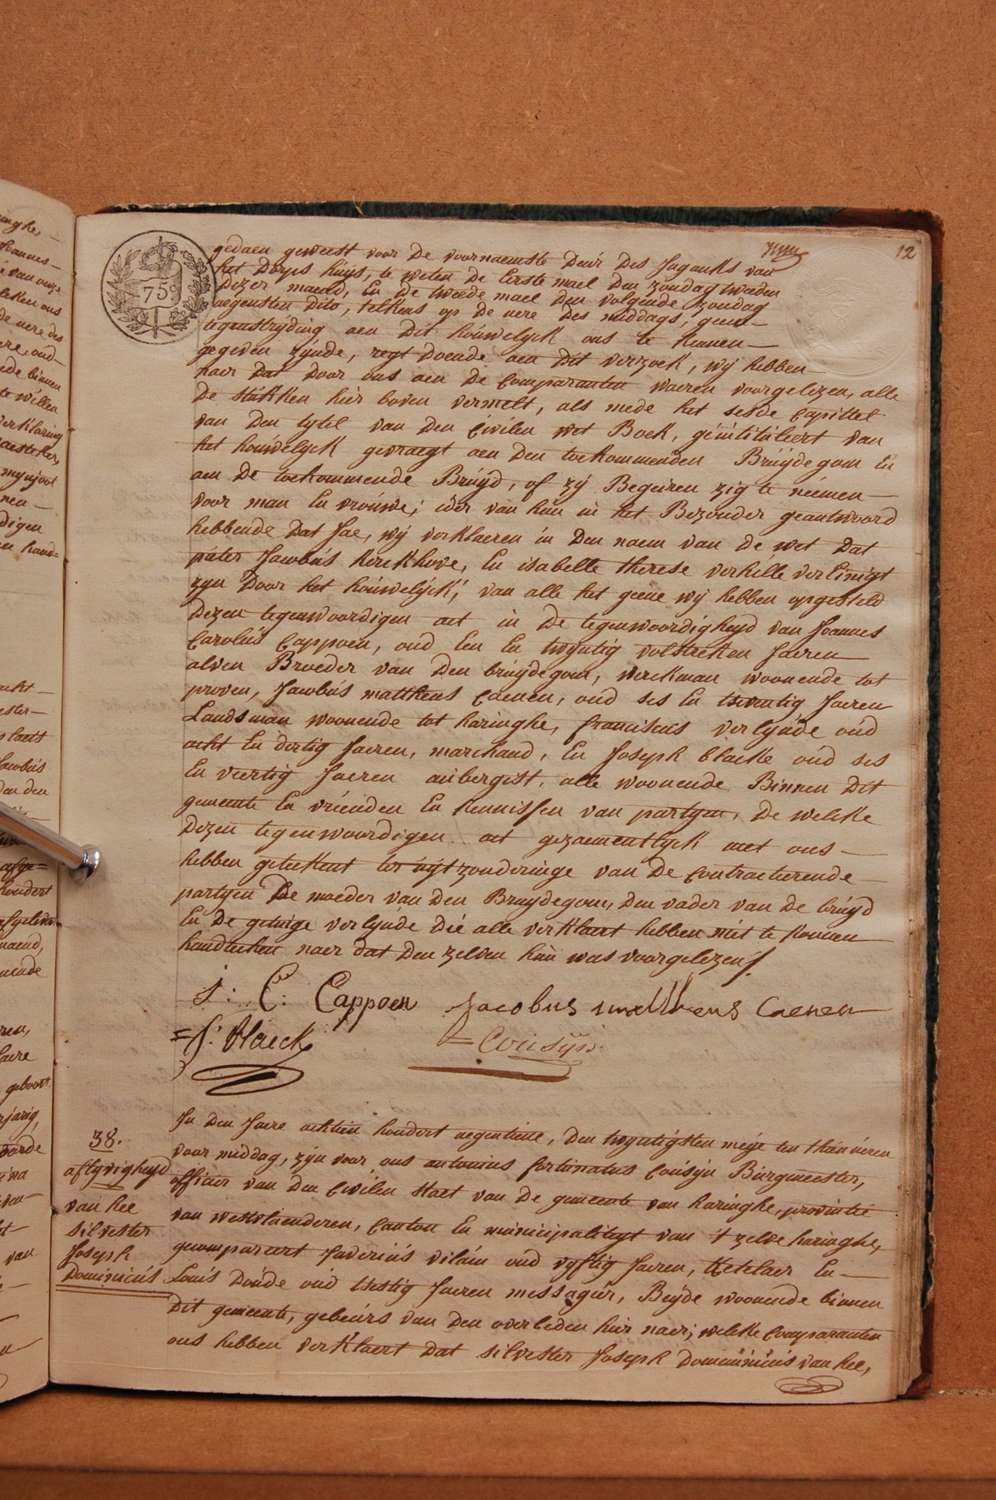 12
75
gedaen geweest voor de voornaemste Deur Des Ingancks van
het Dorps huys, te weten de Eerste mael Den zondag tweeden
Dezer maend, En de tweede mael Den volgende zondag
negensten dito, telkens op de uere Des middags, geen
tegenstryding aen Dit houwelyck ons te kennen
gegeven zynde, regt Doende aen Dit verzoek, wy hebben
naer Dat Door ons aen De Comparanten waeren voorgelezen, alle
De stukken hier boven vermelt, als mede het sesde Capittel
van Den tytel van Den Civilen wet Boek, géintituleert van
het houwelyck gevraegt aen Den toekommenden Bruydegom En
aen De toekommende Bruyd, of zy Begeiren zig te neemen
voor man En vrouwe; ider van hun in het Bezonder geantwoord
hebbende Dat Jae, wy verklaeren in Den naem van De wet Dat
pieter Jacobus Kerckhove, En isabelle therese verhelle verEinigt
zyn Door het houwelyck; van alle het geene wy hebben opgesteld
Dezen tegenwoordigen act in De tegenwoordigheyd van Joannes
Carolus Cappoen, oud Een En twyntig volstrekten Jaeren
alven Broeder van Den bruydegom, werckman woonende tot
proven, Jacobus mattheus Caenen, oud ses En twentig Jaeren
Landsman woonende tot haringhe, franciscus verlynde oud
acht En dertig Jaeren, marchand, En Joseph blaeke oud ses
En veertig Jaeren aubergist, alle woonende Binnen Dit
gemeente En vrienden En kennissen van partyen, De welcke
Dezen tegenwoordigen act gezaementlyck met ons
hebben geteekent ter uytzonderinge van De Contracterende
partyen De moeder van Den Bruydegom, Den vader van De bruyd
En De getuige verlynde Die alle verklaert hebben niet te konnen
handteeken naer dat Den zelven hun was voorgelezen
J: C: Cappoen Jacobus mattheus Caenen
J: Blaeck Cousyn
38.
aflyvigheyd
van hee
silvester
Joseph
Dominicus
In Den Jaere achtien hondert negentiene, Den twyntigsten meye ten thien ueren
voor middag, zyn voor ons antonius fortunatus Cousyn Burgmeester,
officier van Den Civilen Staet van De gemeente van haringhe, provintie
van westvlaenderen, Canton En municipaliteyt van 't zelve haringhe,
gecompareert Xaverius vilain oud vyftig Jaeren, Ketelaer En
Louis Doude oud tsestig Jaeren messagier, Beyde woonende binnen
Dit gemeente, gebeurs van Den overleden hier naer; welcke Comparanten
ons hebben verklaert dat silvester Joseph Dominicus van hee,